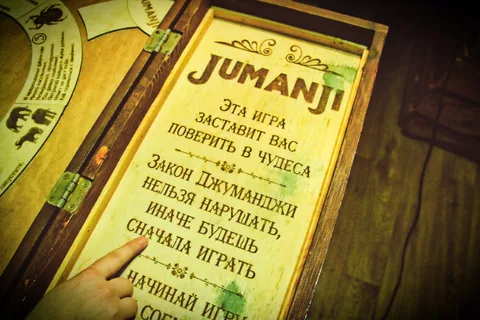 JUMANJI
JUMANJI
ЭТА ИГРА
ЗАСТАВИТ ВАС
ПОВЕРИТЬ В ЧУДЕСА
ЗАКОН ДЖУМАНДЖИ
НЕЛЬЗЯ НАРУШАТЬ,
ИНАЧЕ БУДЕШЬ
СНАЧАЛА ИГРАТЬ
НАЧИНАЙ ИГРУ